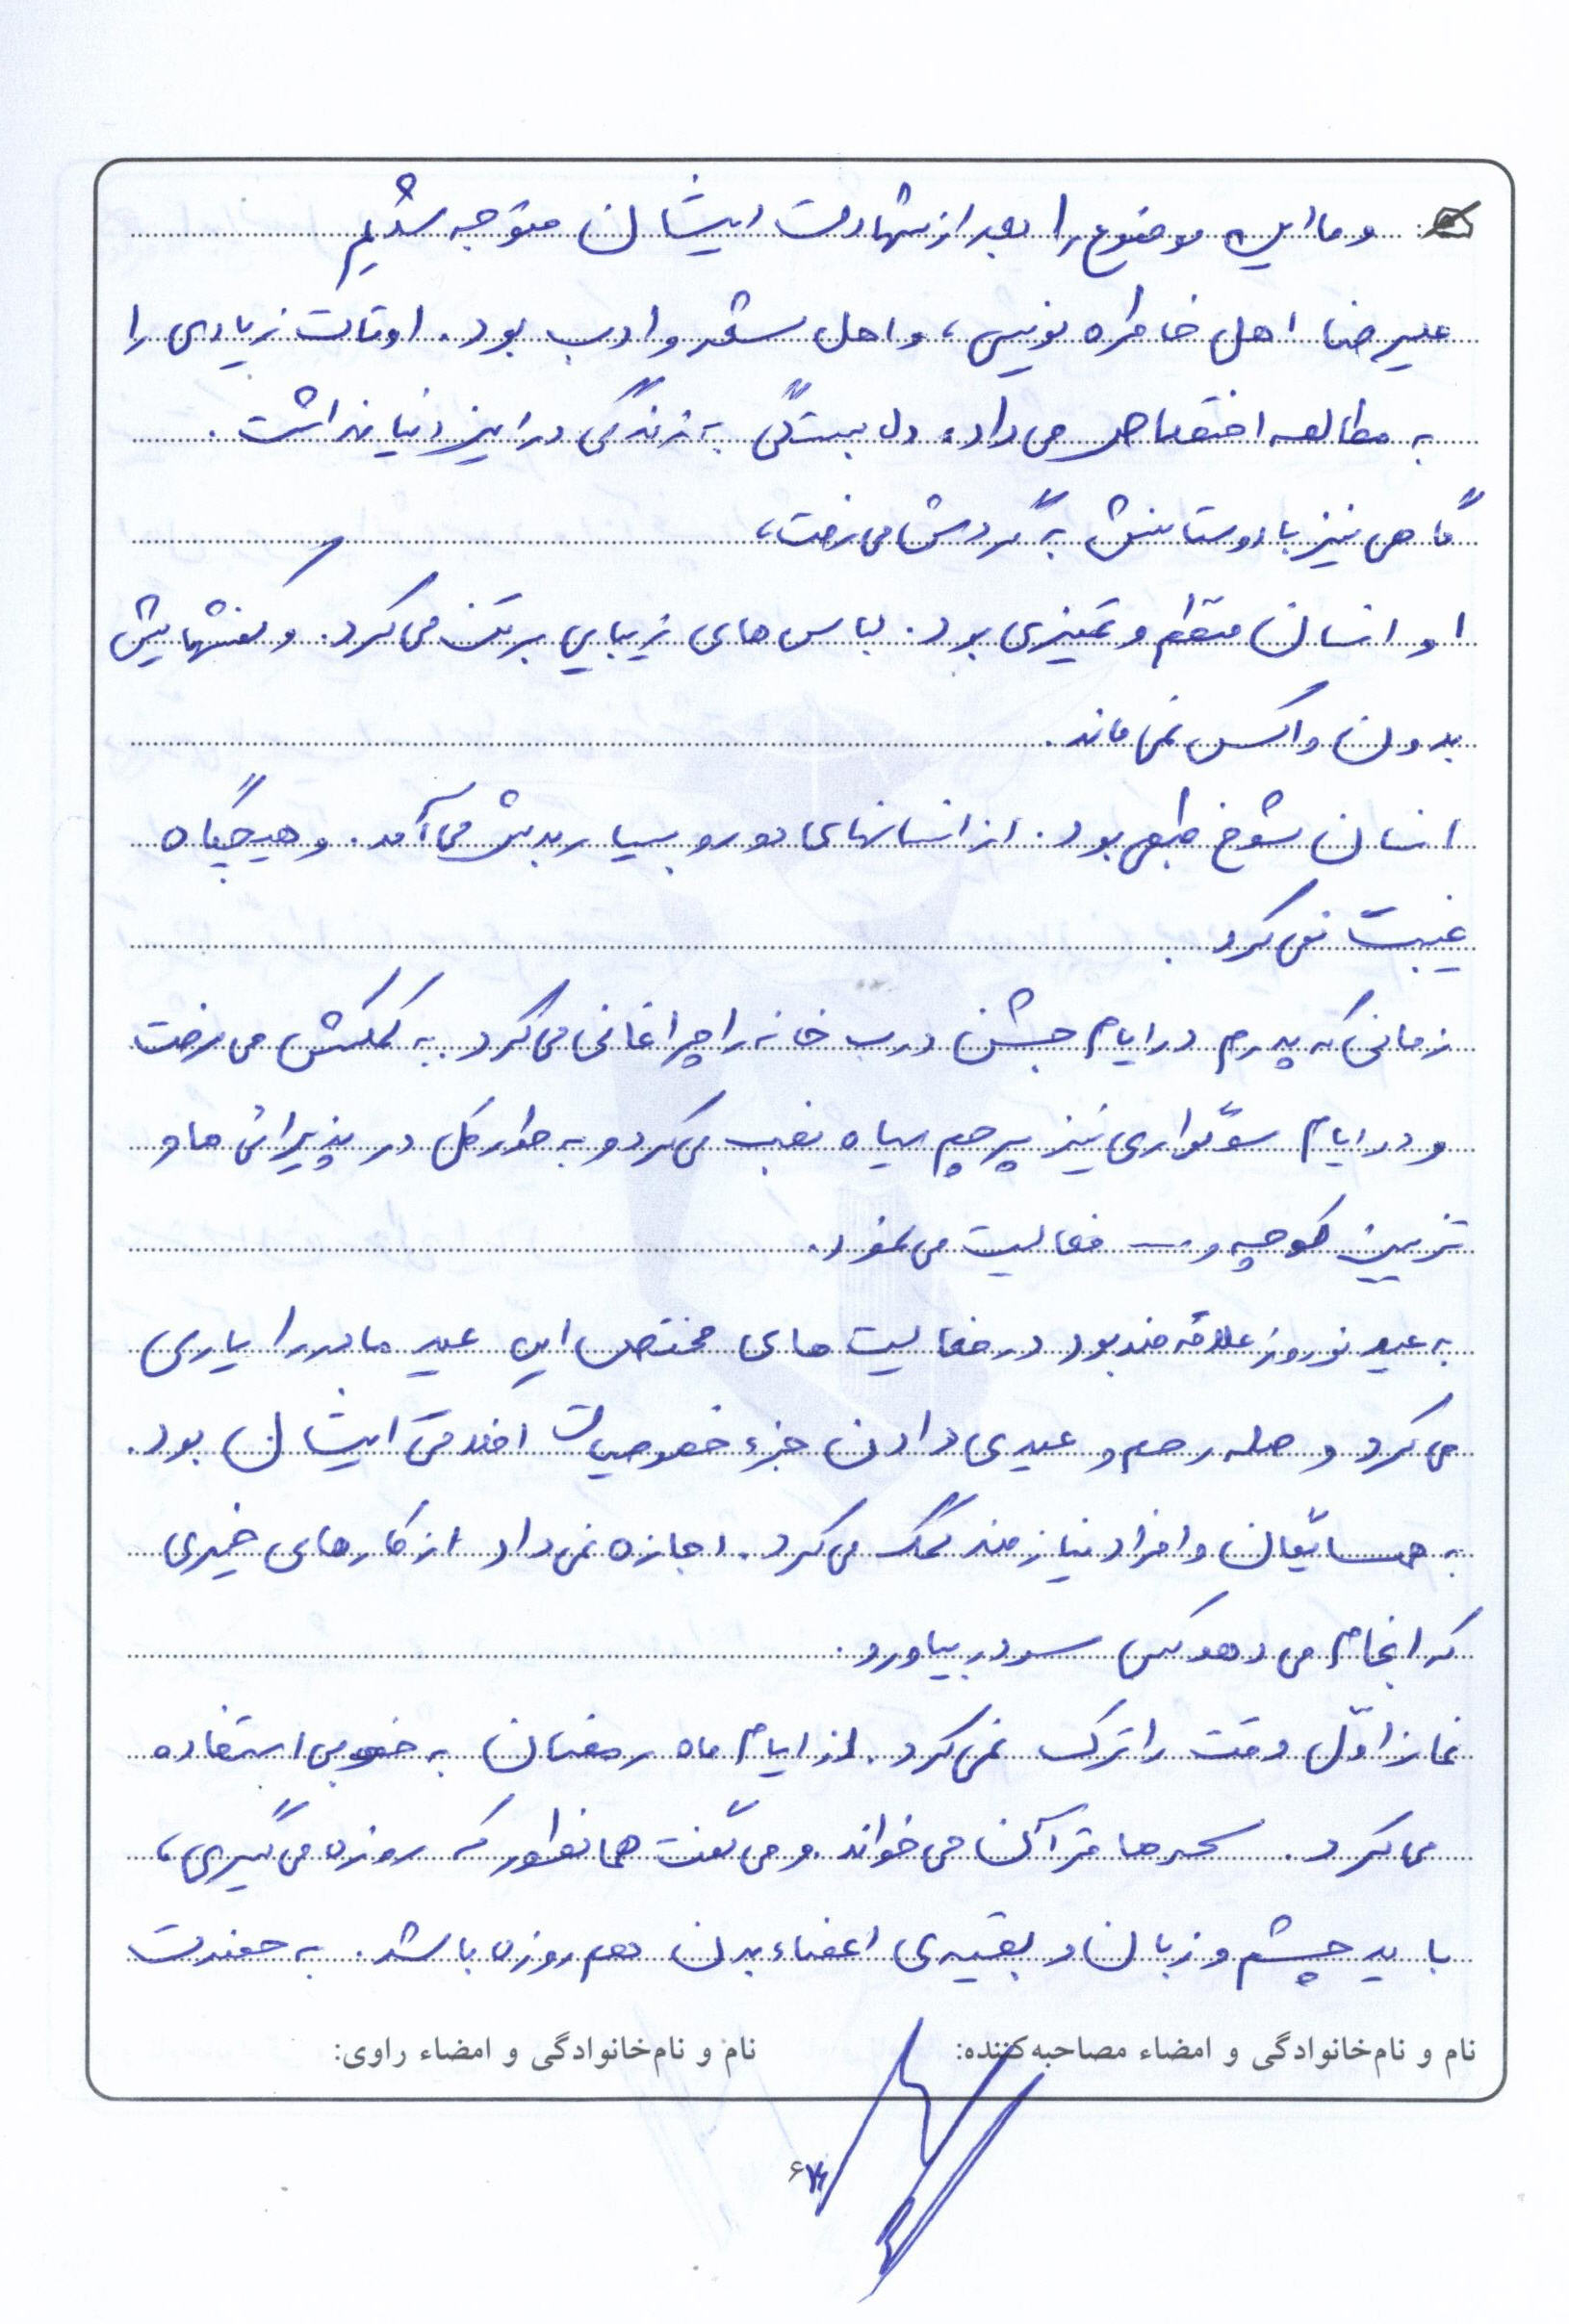 و ما این موضوع را بعد از شهادت ایشان متوجه شدیم
علیرضا اهل خاطره نویسی، و اهل شعر و ادب بود. اوقات زیادی را
به مطالعه اختصاص می داد، دل بستگی به زندگی در این دنیا نداشت.
گاهی نیز با دوستانش به گردش می رفت،
او انسان منظم و تمیزی بود. لباس های زیبایی بر تن می کرد. و کفشهایش
بدون واکس نمی ماند.
انسان شوخ طبعی بود. از انسانهای دورو بسیار بدش می آمد. و هیچگاه
غیبت نمی کرد.
زمانی که پدرم در ایام جشن درب خانه را چراغانی می کرد به کمکش می رفت
و در ایام سوگواری نیز پرچم سیاه نصب می کرد و به طور کل در پذیرائی ها و
تزیین کوچه و ... فعالیت می نمود.
به عید نوروز علاقه مند بود در فعالیت های مختص این عید مادر را یاری
می کرد و صله رحم و عیدی دادن جزء خصوصیات اخلاقی ایشان بود.
به همسایگان و افراد نیازمند کمک می کرد. اجازه نمی داد از کارهای خیری
که انجام می دهد کسی سر در بیاورد.
نماز اوّل وقت را ترک نمی کرد. از ایام ماه رمضان به خوبی استفاده
می کرد. سحرها قرآن می خواند. و می گفت همانطور که روزه می گیری،
باید چشم و زبان و بقیه ی اعضاء بدن هم روزه باشد. به حضرت
نام و نام‌خانوادگی و امضاء مصاحبه‌کننده: نام و نام‌خانوادگی و امضاء راوی: